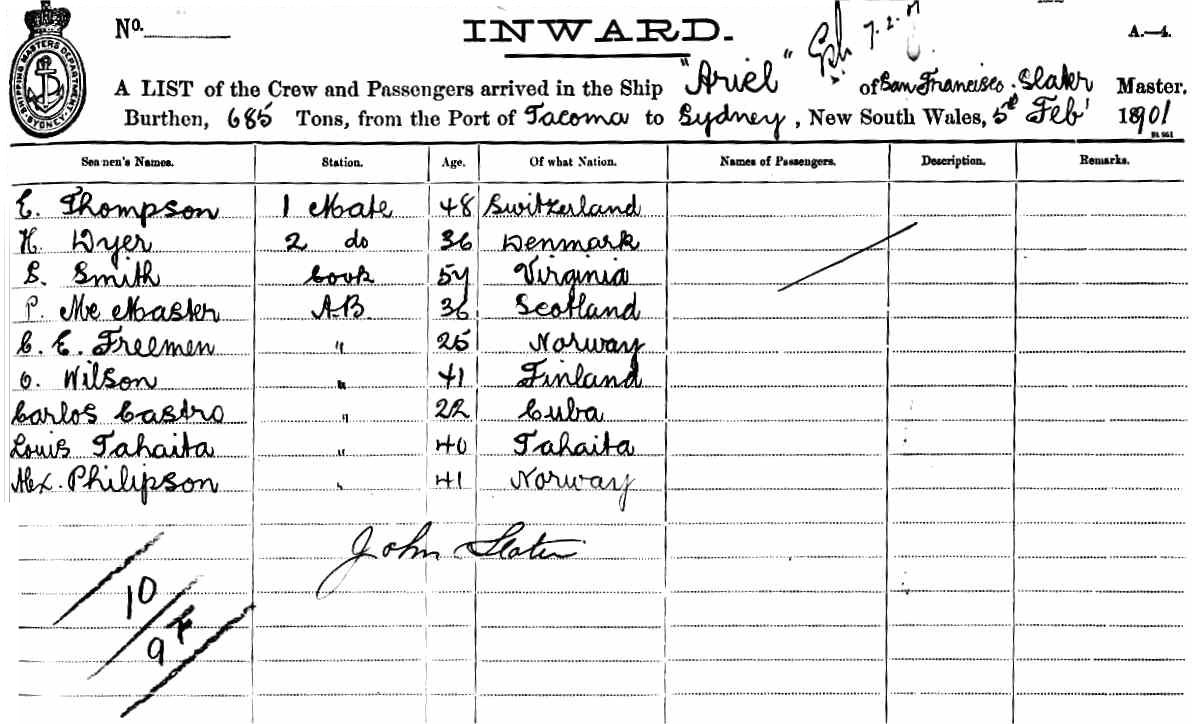 SHIPPING MASTERS DEPARTMENT SYDNEY
No.
INWARD.
7.2.01
A.—4.
A LIST of the Crew and Passengers arrived in the Ship "Ariel" of San Francisco. Slater Master,
Burthen, 685 Tons, from the Port of Tacoma to Sydney, New South Wales, 5th Feb 1901
Seamen's Names. Station. Age. Of what Nation. Names of Passengers. Description. Remarks.
E. Thompson 1 Mate 48 Switzerland
H. Dyer 2 do 36 Denmark
S. Smith Cook Virginia
P. Mc Master AB. 36 Scotland
C. E. Freemen " 25 Norway
O. Wilson " 41 Finland
Carlos Castro " 22 Cuba
Louis Tahaita " 40 Tahaita
Alex. Philipson " 41 Norway
John Slater
10
9 F